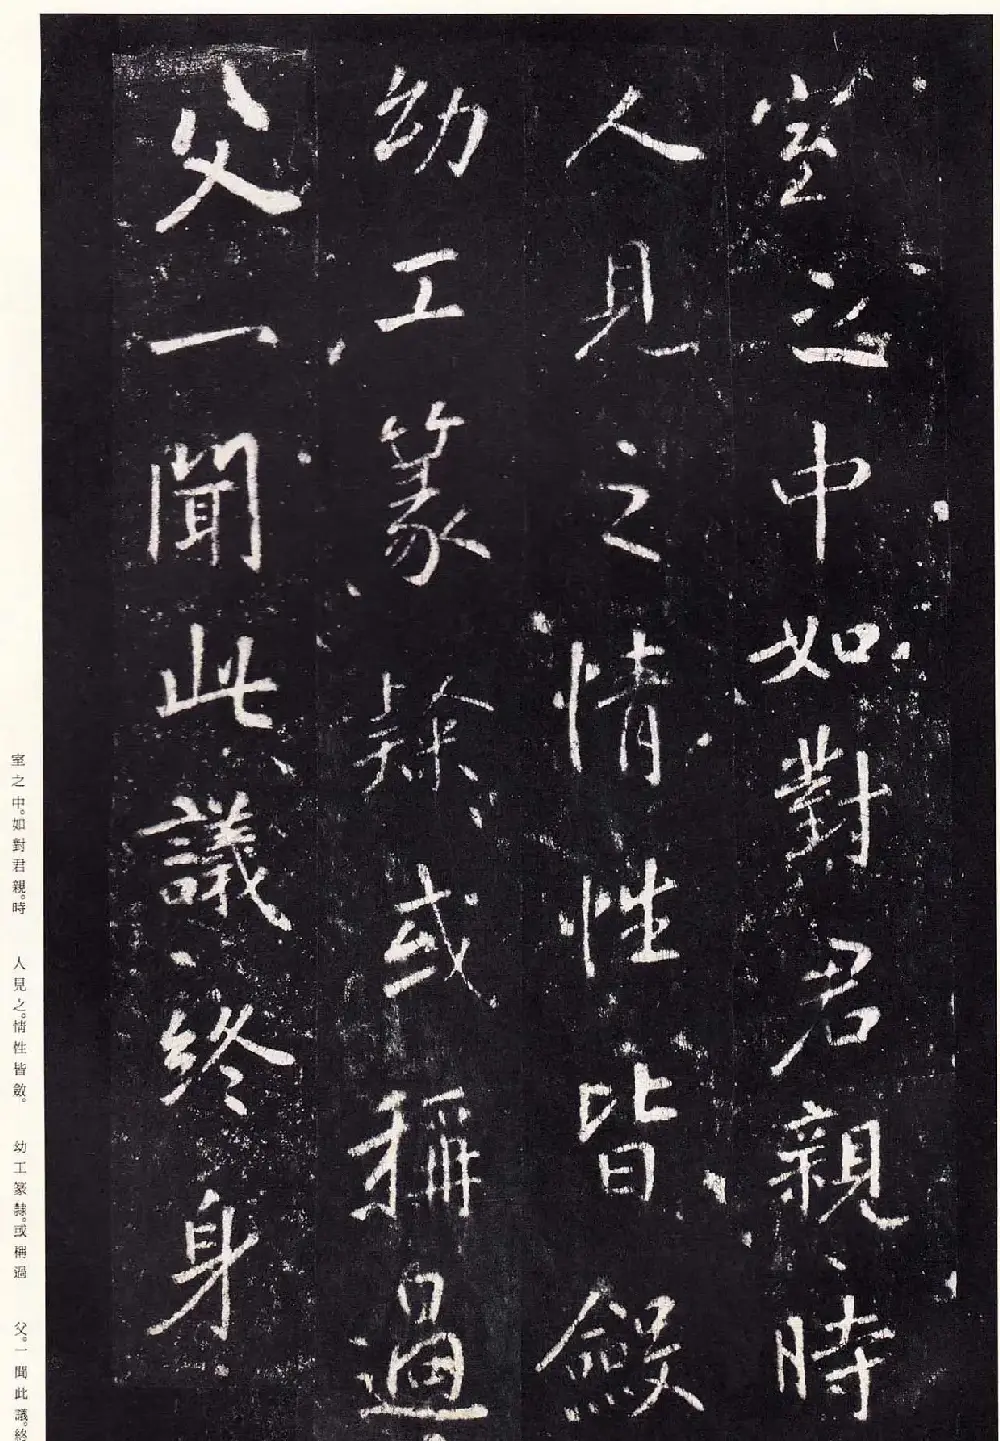 室之中如對君親時
人見之情性皆斂
幼工篆隸或稱過
父一聞此議終身
室之中。如對君親。時
人見之。情性皆斂。
幼工篆隸。或稱過
父。一聞此議。終